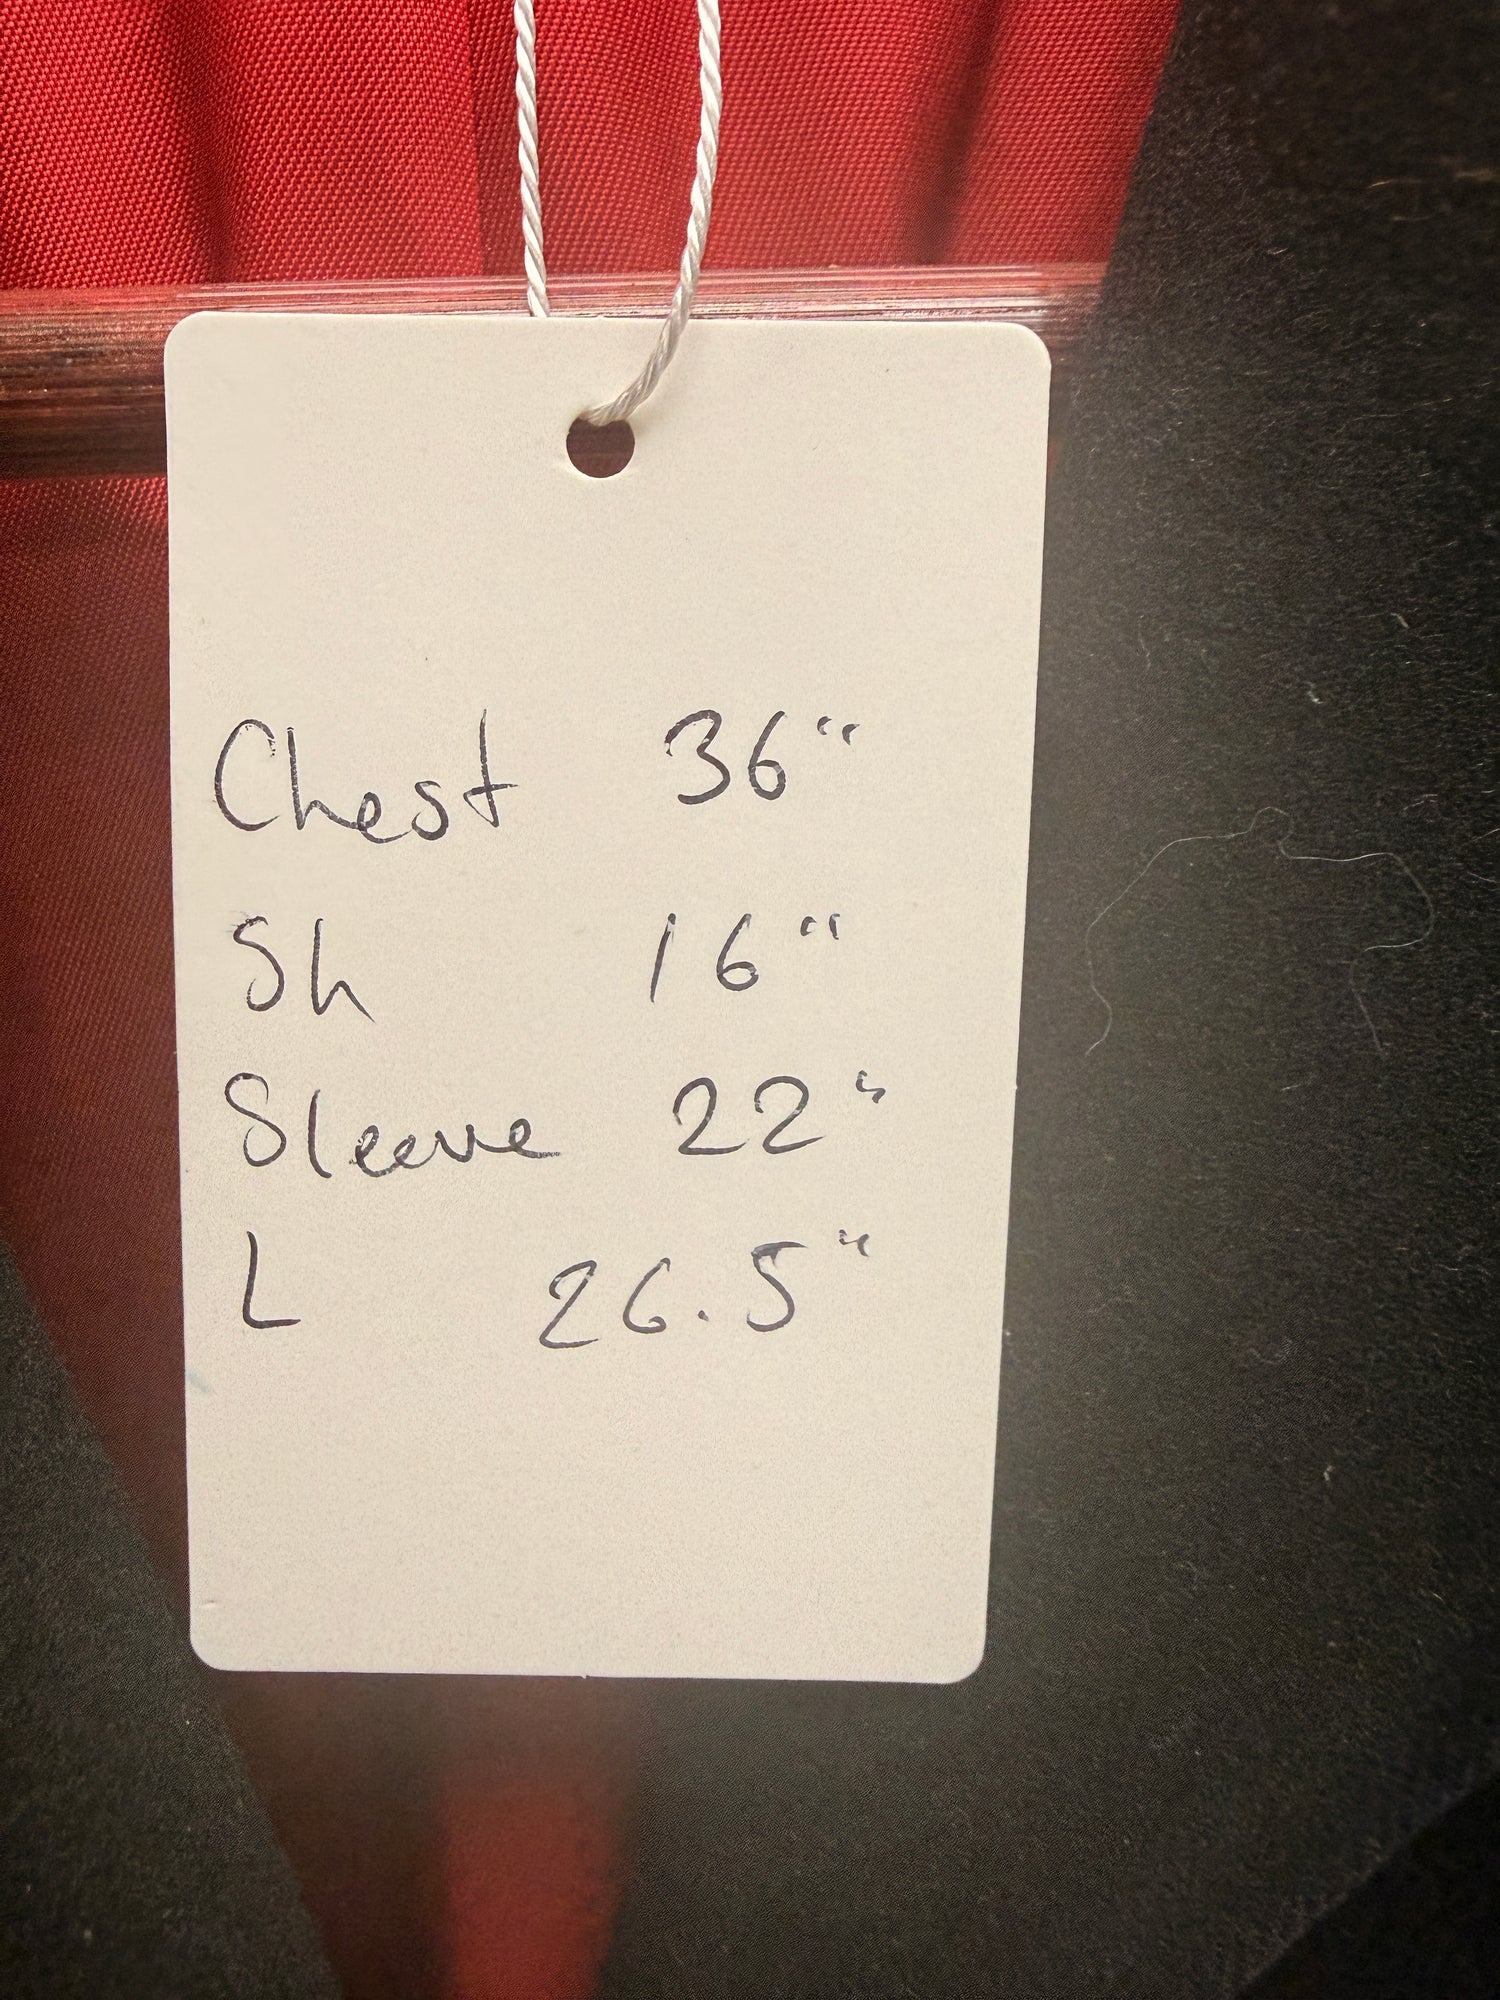 Chest 36"
Sh 16"
Sleeve 22"
L 26.5"